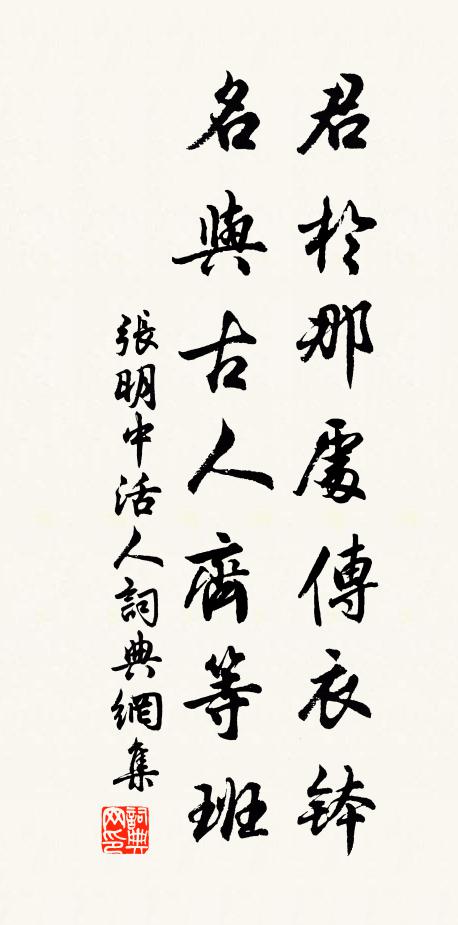 君於那處傳衣鉢
名與古人齊等班
張明中活人詞典網集
詞典网印